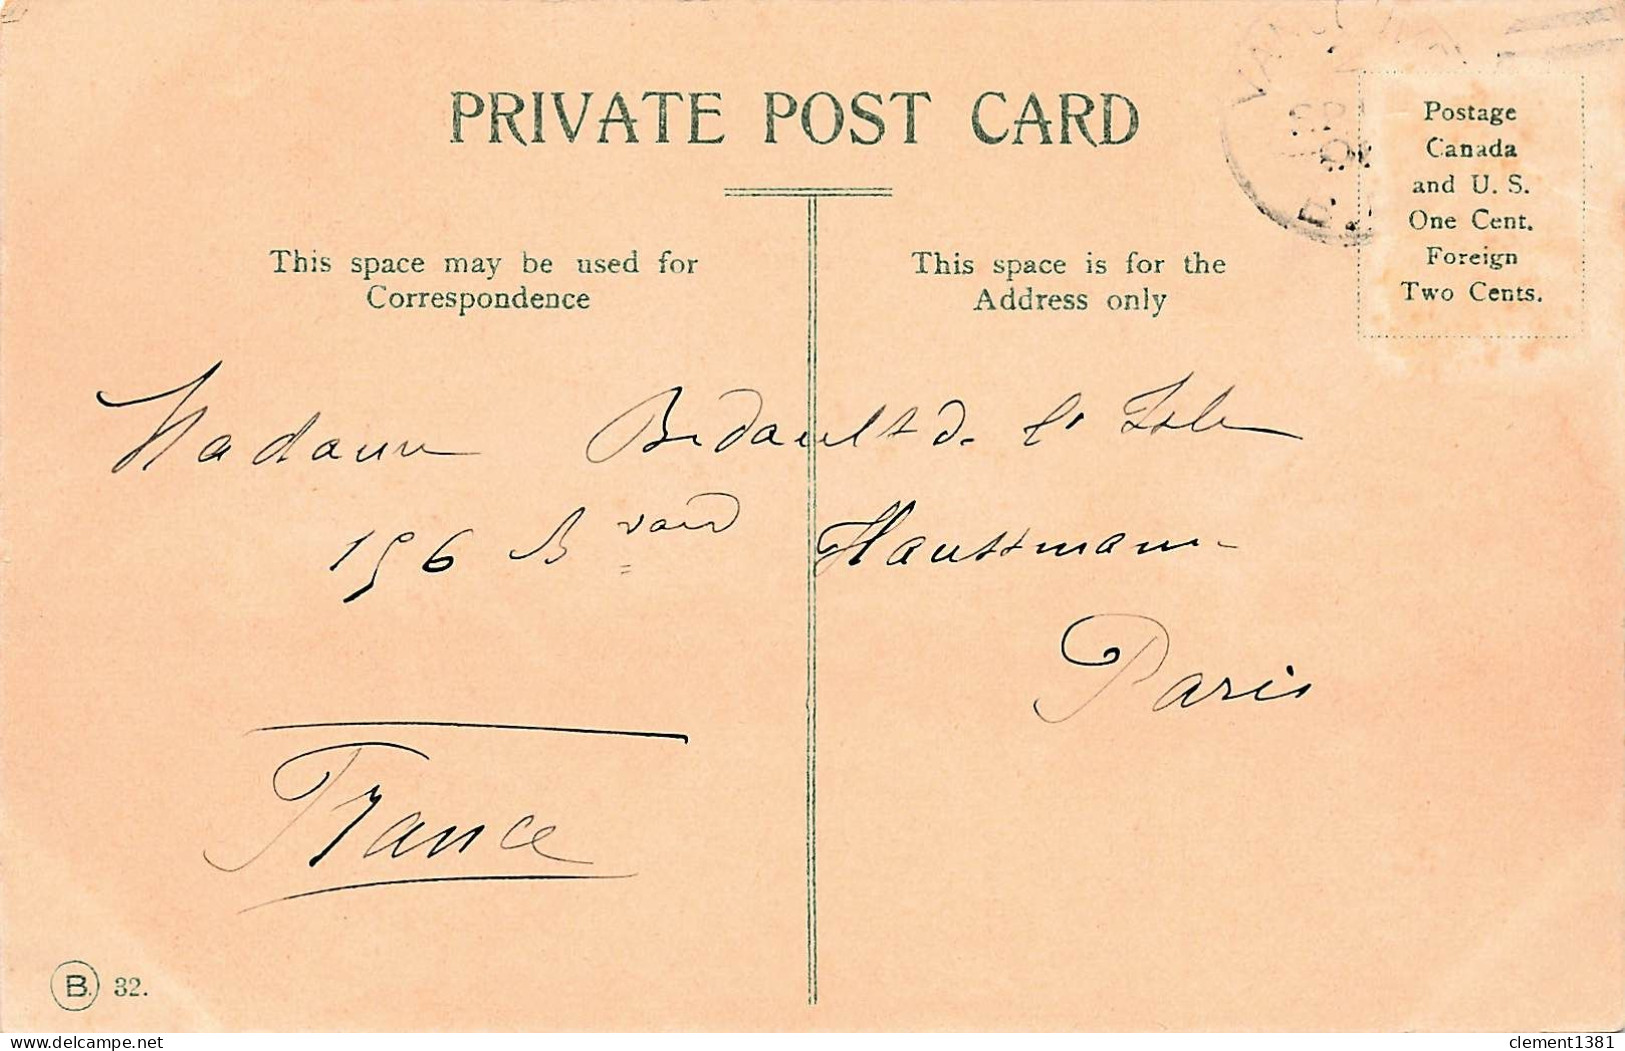 PRIVATE POST CARD
Postage
Canada
and U. S.
One Cent.
Foreign
Two Cents.
This space may be used for
Correspondence
This space is for the
Address only
Madame Bedault d. l' Isle
156 Bvard Haussmann
Paris
France
B. 32.
delcampe.net
clement1381